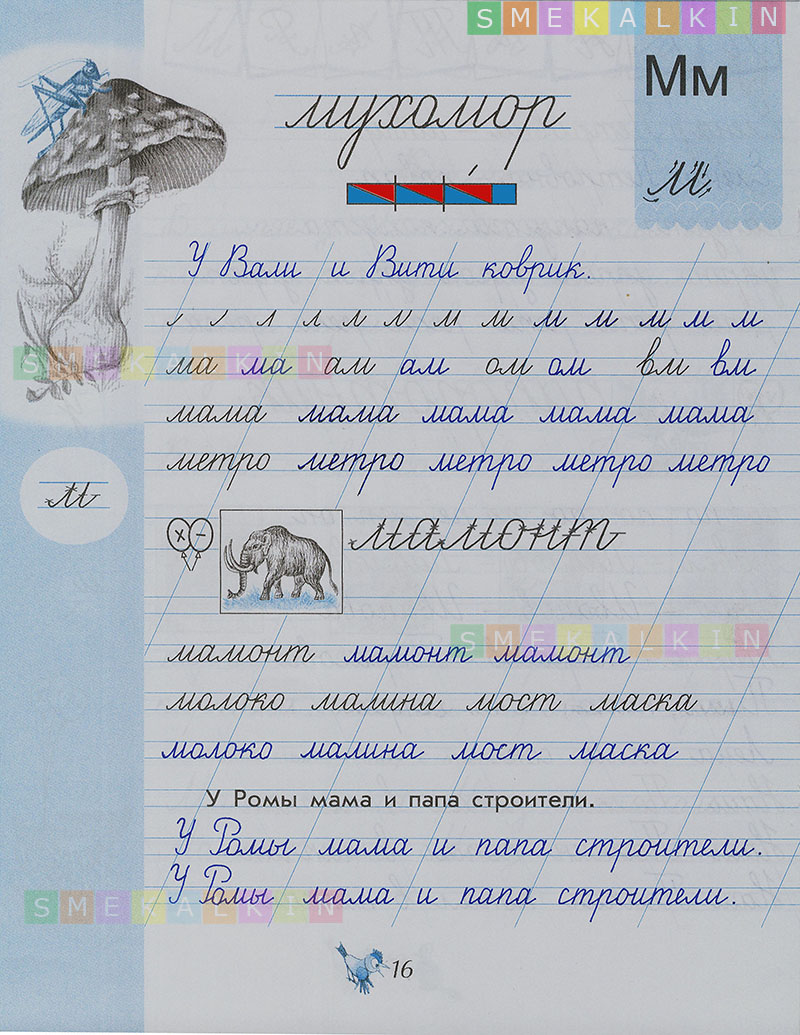 SMEKALKIN
Мм
мухомор
м
У Вали и Вити коврик.
л л м м м м м м м
SMEKALKIN
ма ма ам ам ом ом вм вм
мама мама мама мама мама
метро метро метро метро метро
м
× –
мамонт
SMEKALKIN
мамонт мамонт мамонт
молоко малина мост маска
молоко малина мост маска
У Ромы мама и папа строители.
У Ромы мама и папа строители.
У Ромы мама и папа строители.
SMEKALKIN
16